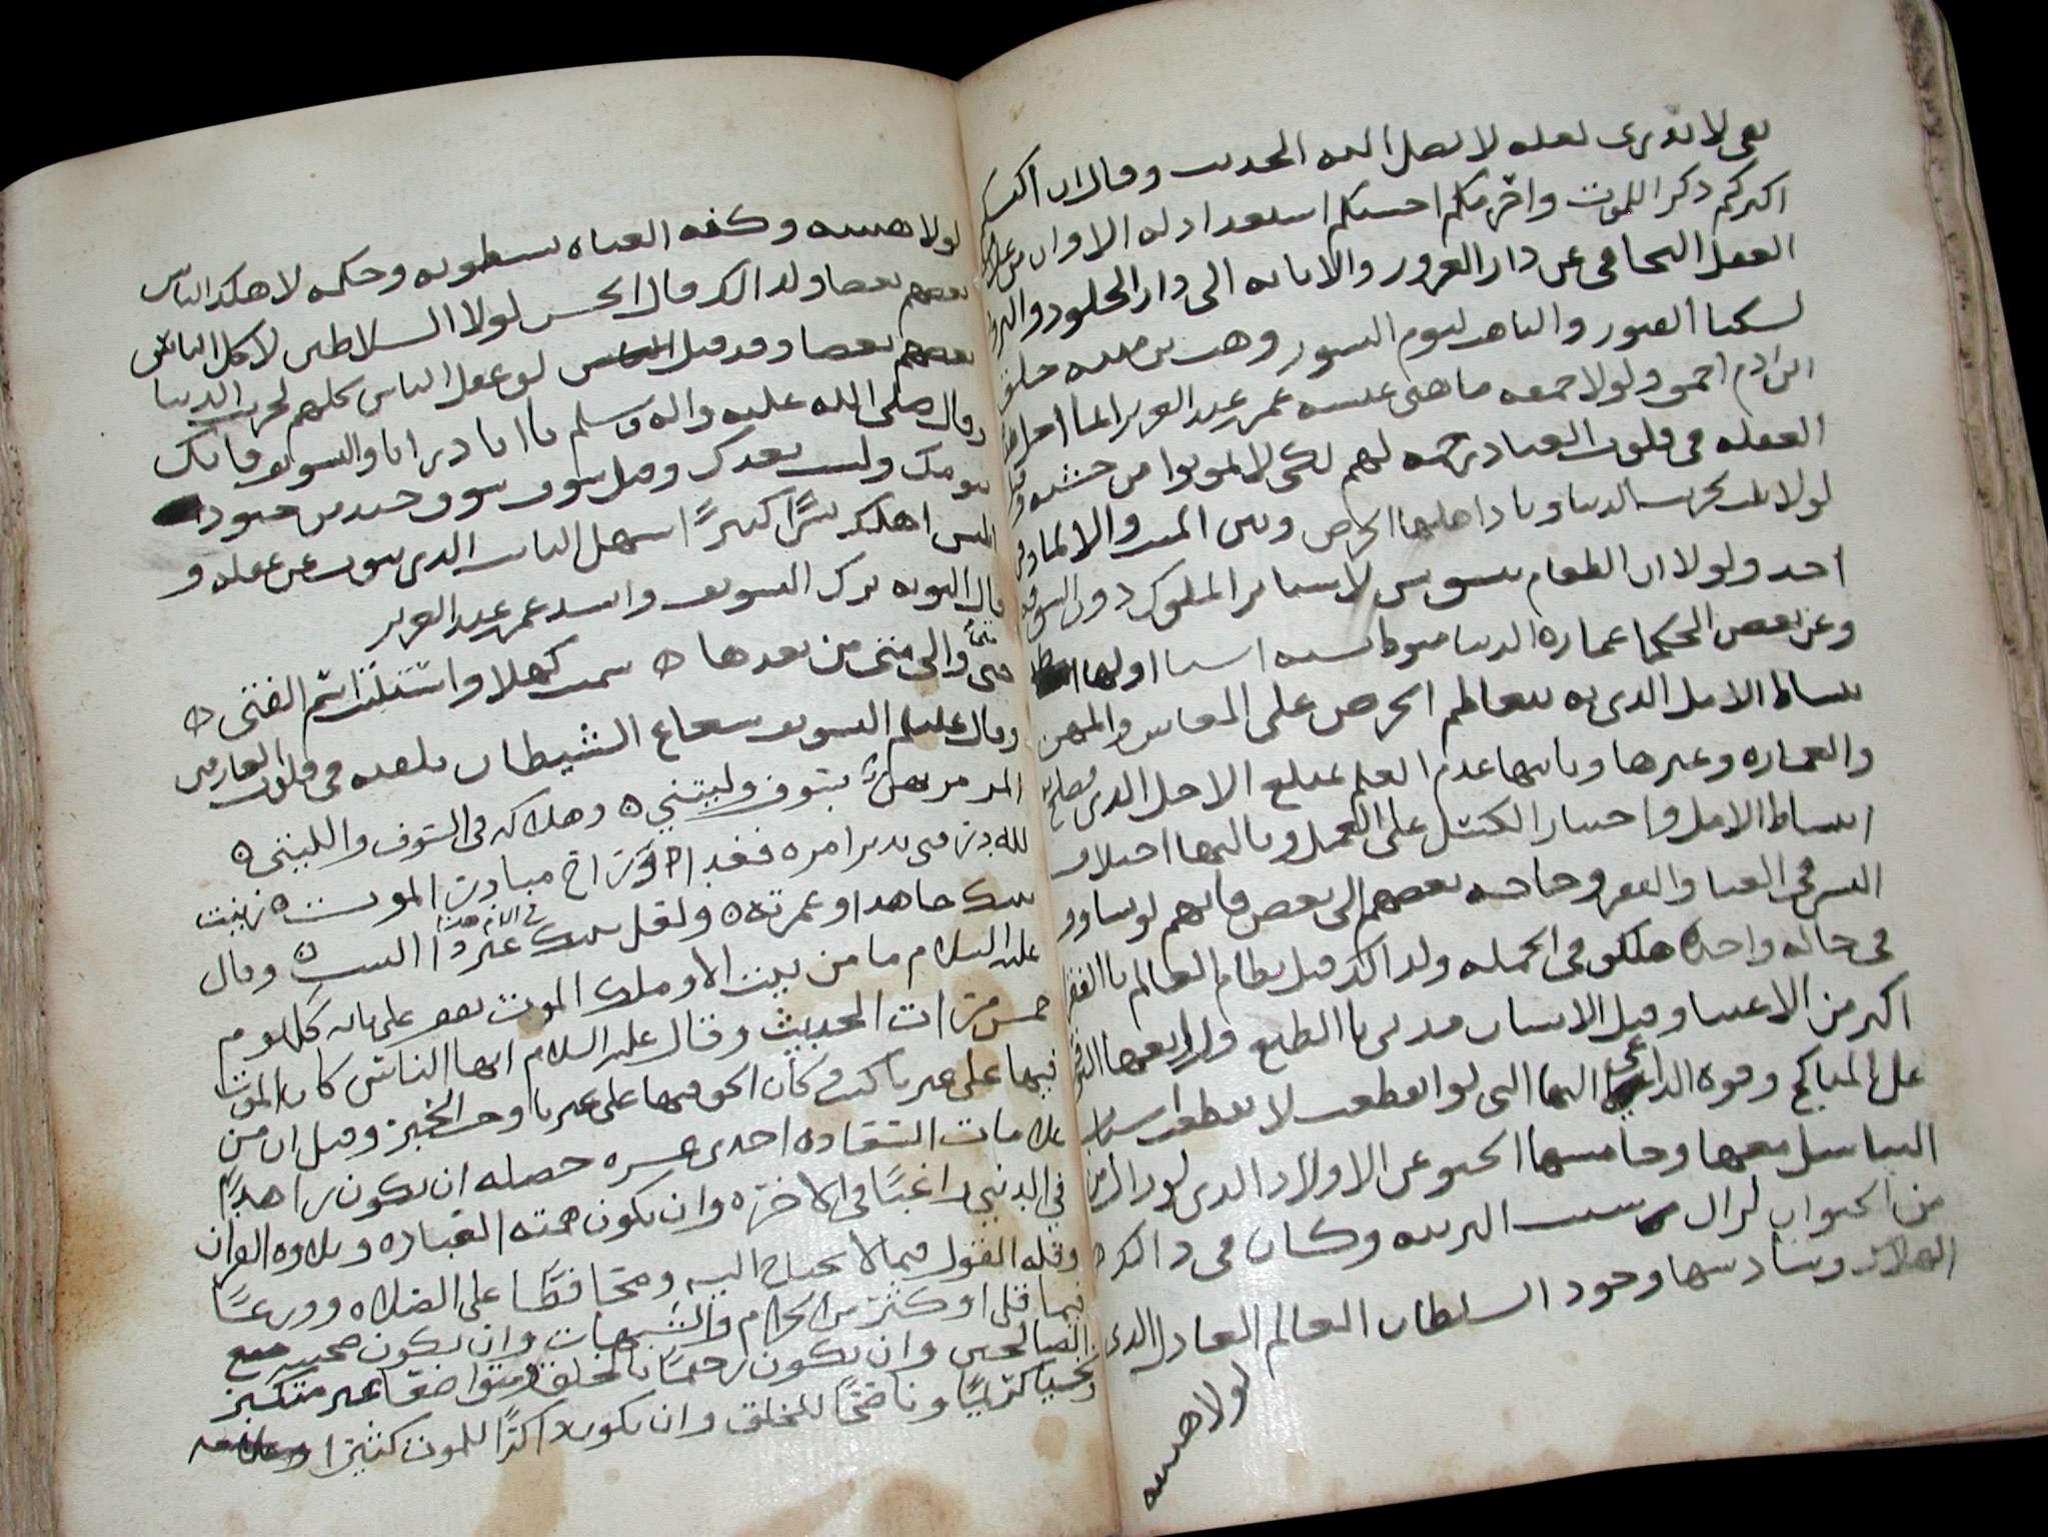 بقي لا تدري لعله لا يصل اليه الحديث وقال ان اكيسكم
اكثركم ذكر الموت واحزمكم احسنكم استعدادا له الا وان من علامات
العقل التجافي عن دار الغرور والانابه الى دار الخلود والتزود
لسكنا القبور والتاهب ليوم النشور وهب بن منبه خلق
ابن ادم احمق ولولا حمقه ما هنى عيشه عمر بن عبد العزيز انما جعل الله
الغفله في قلوب العباد رحمه لهم لكي لا يموتوا من خشيه
لولا ثلاث لخربت الدنيا وباد اهلها الحرص
احد ولولا ان الطعام يسوس لاستاثر الملوك دون السوقه
وعن بعض الحكما عماره الدنيا منوطه بسته اسيا اولها
بساط الامل الذي به يتعاظم الحرص على المعاش والمهن
والعماره وغيرها وثانيها عدم العلم بمبلغ الاجل الذي يصلح به
انبساط الامل واختيار الكسل على العمل وثالثها اختلاف
الناس في الغنا والفقر وحاجه بعضهم الى بعض فانهم لو تساووا
في حاله واحده هلكوا في الجمله ولذالك قيل نظام العالم بالفقرا
اكثر من الاغنيا وقيل الانسان مدني بالطبع ورابعها
على المناكح وقوه الداعي اليها التي لو انقطعت لانقطعت اسباب
التناسل معها وخامسها الحنو على الاولاد الذي لو زال من
من الحيوان لزال سبب التربيه وكان في ذالك
الهلاك وسادسها وجود السلطان العالم العادل الذي
لولا هيبته
لولا هيبته وكفه العتاه بسطوته وحكمه لاهلك الناس
بعضهم بعضا ولذالك قال الحسن لولا السلاطين لاكل الناس
بعضهم بعضا وقد قيل لو عقل الناس كلهم لخربت الدنيا
وقال صلى الله عليه واله وسلم يا ابا ذر اياك والتسويف فانك
بيومك ولست بعدك وقيل سوف سوف جند من جنود
ابليس اهلك بشرا كثيرا اسهل الناس الذي يتوب عن غفله و
قال التوبه ترك التسويف وانشد عمر بن عبد العزيز
متى والى متى من بعدها سميت كهلا واستلبت اسم الفتى
وقال عليلم التسويف شعاع الشيطان يلقيه في قلوب العارفين
المرء مرتهن بسوف وليتني وهلاكه في السوف والليتني
لله در فتى تدبر امره فغدا وراح مبادر الموت
بيتك جاهدا وعمرته ولعل بيتك غير ذا البيت وقال
عليه السلام ما من بيت الا وملك الموت يقف على بابه كل يوم
خمس مرات الحديث وقال عليه السلام ايها الناس كان الموت
فيها على غيرنا كتب وكان الحق فيها على غيرنا وجب الخبر وقيل ان من
علامات السعاده احدى عشره خصله ان يكون زاهدا
في الدنيى راغبا في الاخره وان يكون همته العباده وتلاوه القران
وقله القول فيما لا يحتاج اليه ومحافظا على الصلاه وورعا
فيما قل او كثر من الحرام والشبهات وان يكون صحبته مع
الصالحين وان يكون رحيما بالخلق متواضعا غير متكبر
وسخيا كريما وناصحا للخلق وان يكون ذاكرا للموت كثيرا